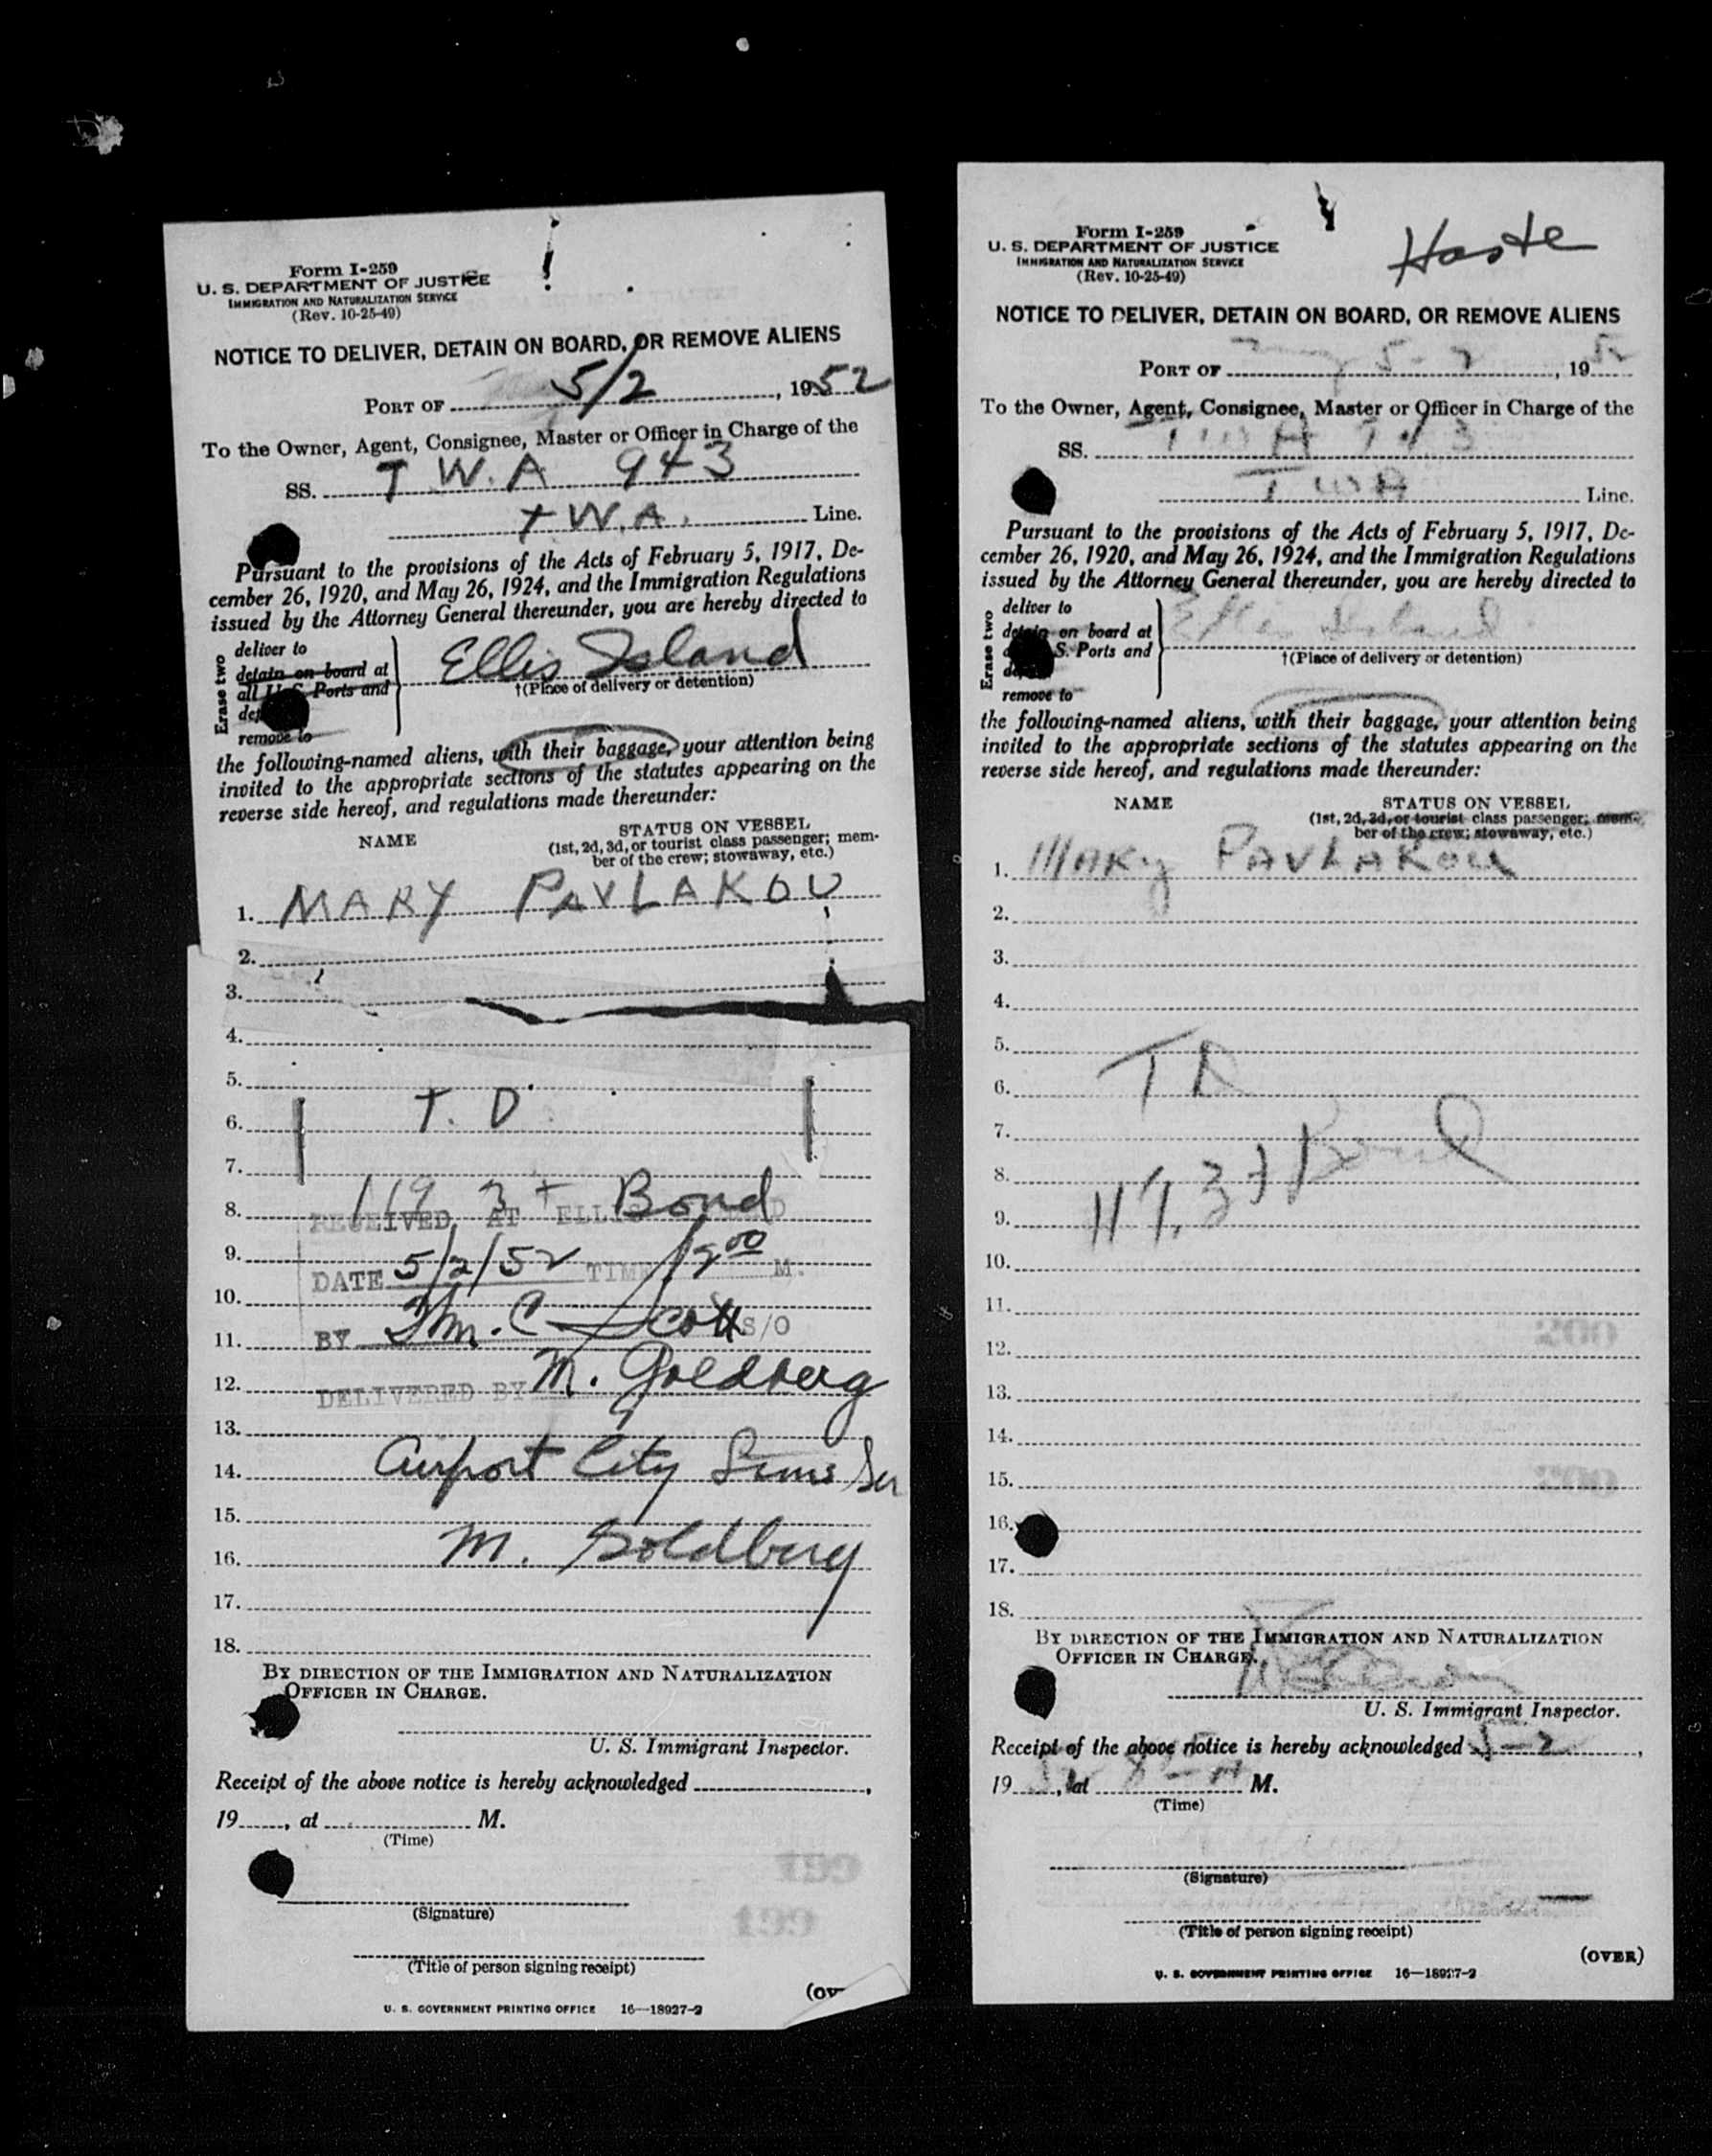 Form I-259
U. S. DEPARTMENT OF JUSTICE
IMMIGRATION AND NATURALIZATION SERVICE
(Rev. 10-25-49)
NOTICE TO DELIVER, DETAIN ON BOARD, OR REMOVE ALIENS
PORT OF 5/2, 1952
To the Owner, Agent, Consignee, Master or Officer in Charge of the
SS. T W.A 943
T.W.A. Line.
Pursuant to the provisions of the Acts of February 5, 1917, De-
cember 26, 1920, and May 26, 1924, and the Immigration Regulations
issued by the Attorney General thereunder, you are hereby directed to
Erase two
deliver to
detain on board at
all U.S. Ports and
remove to
Ellis Island
†(Place of delivery or detention)
the following-named aliens, with their baggage, your attention being
invited to the appropriate sections of the statutes appearing on the
reverse side hereof, and regulations made thereunder:
NAME STATUS ON VESSEL
(1st, 2d, 3d, or tourist class passenger; mem-
ber of the crew; stowaway, etc.)
1. MARY PAVLAKOU
2.
3.
4.
5.
6. T. D.
7.
8. 119 3 + Bond
RECEIVED AT ELLIS
9.
DATE 5/2/52 TIME 12 00 M.
10.
11. BY Wm. C Scott S/O
12. DELIVERED BY M. Goldberg
13.
14. Airport City Lims Ser
15.
16. M. Goldberg
17.
18.
BY DIRECTION OF THE IMMIGRATION AND NATURALIZATION
OFFICER IN CHARGE.
U. S. Immigrant Inspector.
Receipt of the above notice is hereby acknowledged,
19, at M.
(Time)
199
(Signature)
(Title of person signing receipt)
U. S. GOVERNMENT PRINTING OFFICE 16—18927-2
Form I-259
U. S. DEPARTMENT OF JUSTICE
IMMIGRATION AND NATURALIZATION SERVICE
(Rev. 10-25-49)
Haste
NOTICE TO DELIVER, DETAIN ON BOARD, OR REMOVE ALIENS
PORT OF 5-2, 1952
To the Owner, Agent, Consignee, Master or Officer in Charge of the
SS. TWA 943
TWA Line.
Pursuant to the provisions of the Acts of February 5, 1917, De-
cember 26, 1920, and May 26, 1924, and the Immigration Regulations
issued by the Attorney General thereunder, you are hereby directed to
Erase two
deliver to
detain on board at
S. Ports and
remove to
Ellis Island
†(Place of delivery or detention)
the following-named aliens, with their baggage, your attention being
invited to the appropriate sections of the statutes appearing on the
reverse side hereof, and regulations made thereunder:
NAME STATUS ON VESSEL
(1st, 2d, 3d, or tourist class passenger; mem-
ber of the crew; stowaway, etc.)
1. MARY PAVLAKOU
2.
3.
4.
5.
6. T D
7.
8. Bond
9.
10.
11.
12.
13.
14.
15.
16.
17.
18.
BY DIRECTION OF THE IMMIGRATION AND NATURALIZATION
OFFICER IN CHARGE.
U. S. Immigrant Inspector.
Receipt of the above notice is hereby acknowledged 5-2,
19, at M.
(Time)
(Signature)
(Title of person signing receipt)
(OVER)
U. S. GOVERNMENT PRINTING OFFICE 16—18927-2